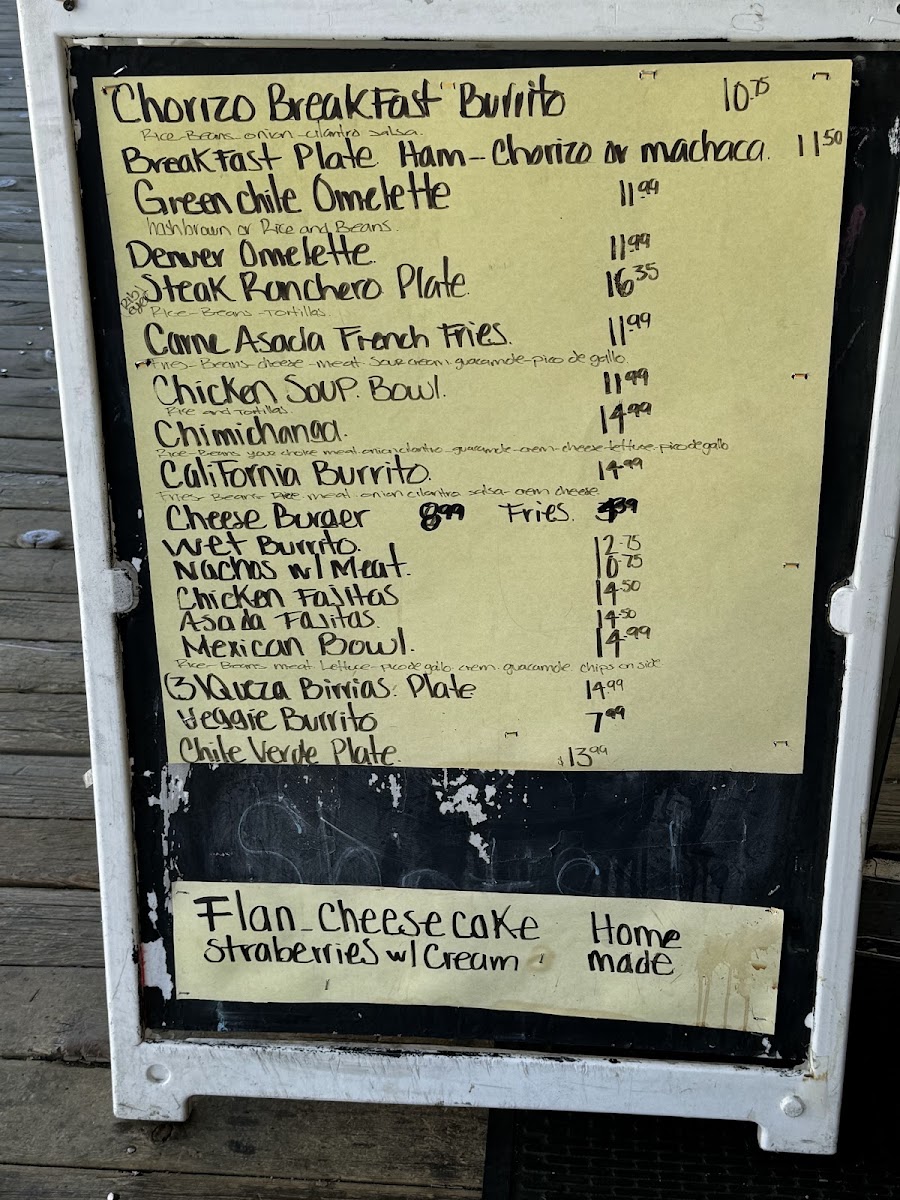 Chorizo Breakfast Burrito 10.75
Rice-Beans-onion-cilantro salsa.
Breakfast Plate Ham-Chorizo or machaca. 11 50
Green chile Omelette 11 99
hashbrown or Rice and Beans.
Denver Omelette. 11 99
Steak Ranchero Plate. 16 35
Rib eye
Rice-Beans-Tortillas.
Carne Asada French Fries. 11 99
Fries-Beans-cheese-meat-Sour cream. guacamole-pico de gallo.
Chicken Soup. Bowl. 11 99
Rice and Tortillas.
Chimichanga. 14 99
Rice-Beans your choice meat onion cilantro-guacamole-crem-cheese-lettuce-pico de gallo
California Burrito. 14 99
Fries-Beans-Rice. meat. onion cilantro salsa-crem cheese.
Cheese Burger 8 99 Fries. 39
Wet Burrito. 12.75
Nachos w/ Meat. 10.75
Chicken Fajitas 14 50
Asada Fajitas. 14.50
Mexican Bowl. 14.99
Rice-Beans meat. Lettuce-pico de gallo. crem. guacamole. chips on side
(3) Queza Birrias. Plate 14 99
Veggie Burrito 7 99
Chile Verde Plate. $13 99
Flan-cheese cake Home
straberries w/ Cream made